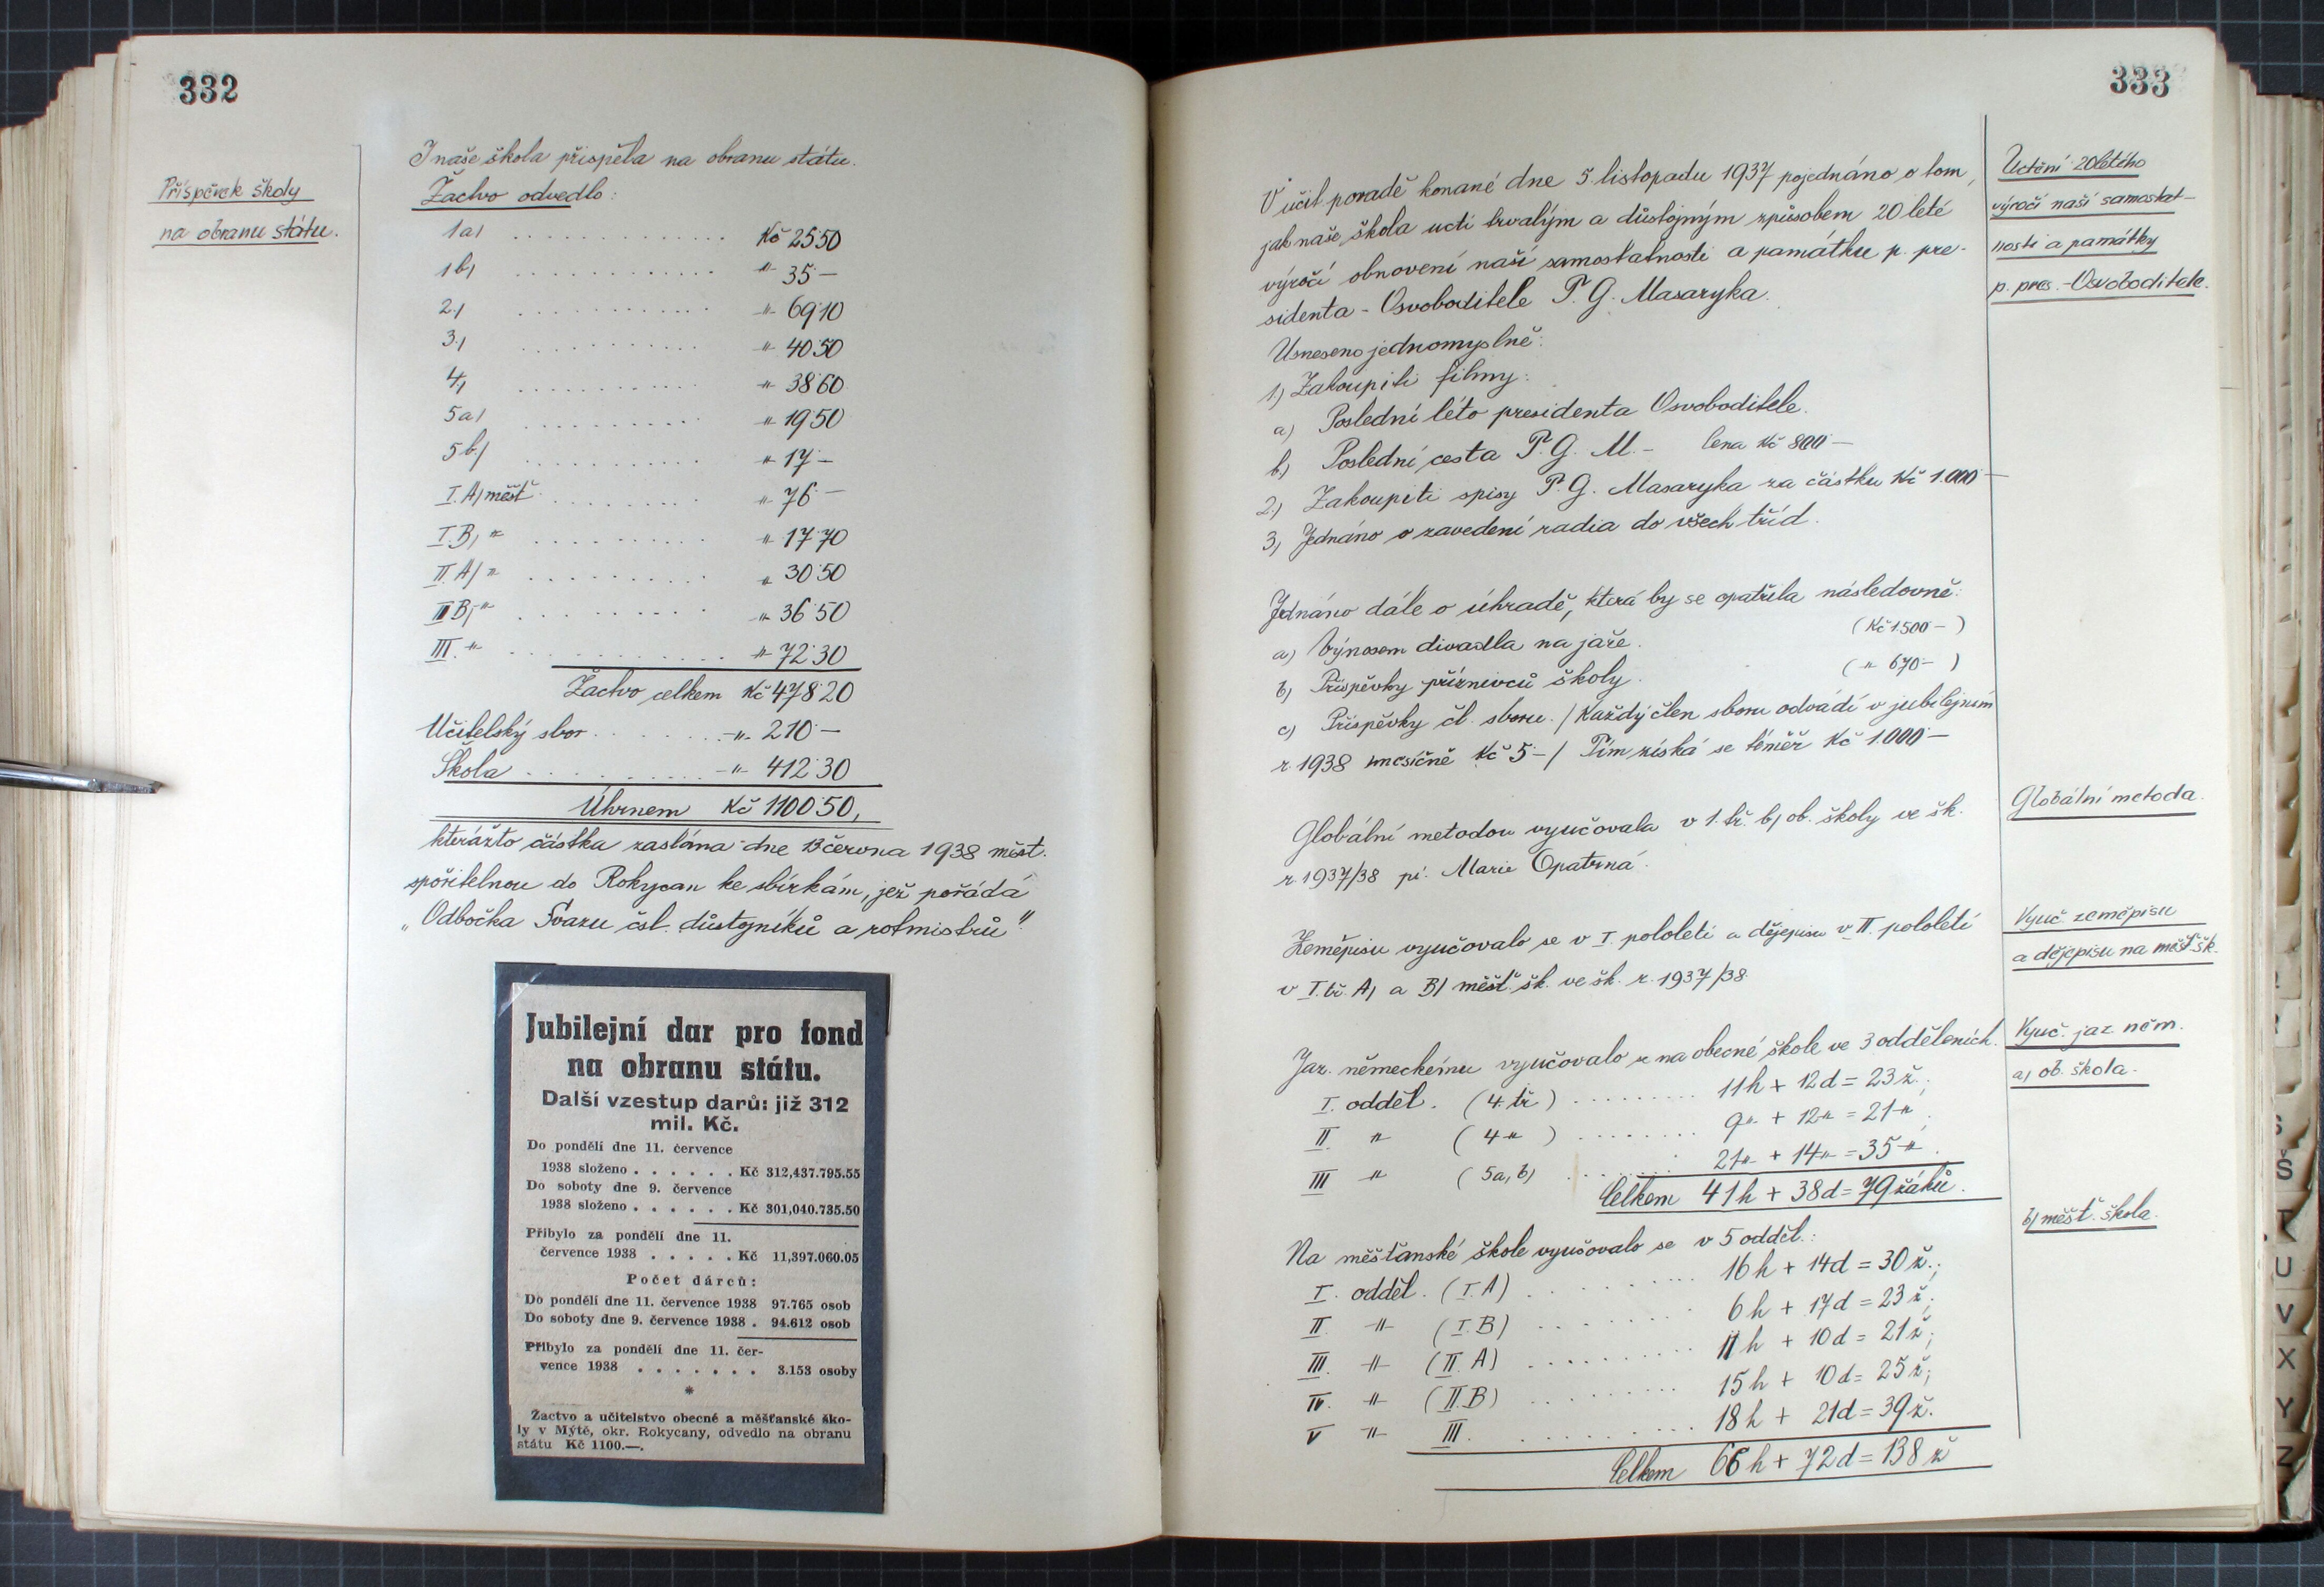 332
Příspěvek školy
na obranu státu.
I naše škola přispěla na obranu státu.
Žactvo odvedlo:
1a) . . . . . . . . . . . . . Kč 25·50
1b) . . . . . . . . . . . . " 35·—
2.) . . . . . . . . . . . . " 69·10
3.) . . . . . . . . . . . " 40·50
4.) . . . . . . . . . . . " 38·60
5a) . . . . . . . . . . " 19·50
5b.) . . . . . . . . . . " 17·—
I. A) měšť. . . . . . . . . " 76·—
I. B) " . . . . . . . . . . " 17·70
II. A) " . . . . . . . . . . " 30·50
II B) " . . . . . . . . . . " 36·50
III. " . . . . . . . . . . . . " 72·30
Žactvo celkem Kč 478·20
Učitelský sbor . . . . . . . " 210·—
Škola . . . . . . . . . . . " 412·30
Úhrnem Kč 1100·50,
kterážto částka zaslána dne 13 června 1938 měst.
spořitelnou do Rokycan ke sbírkám, jež pořádá
„Odbočka Svazu čsl. důstojníků a rotmistrů".
Jubilejní dar pro fond
na obranu státu.
Další vzestup darů: již 312
mil. Kč.
Do pondělí dne 11. července
1938 složeno . . . . . . Kč 312,437.795.55
Do soboty dne 9. července
1938 složeno . . . . . . Kč 301,040.735.50
Přibylo za pondělí dne 11.
července 1938 . . . . . Kč 11,397.060.05
Počet dárců:
Do pondělí dne 11. července 1938 97.765 osob
Do soboty dne 9. července 1938 . 94.612 osob
Přibylo za pondělí dne 11. čer-
vence 1938 . . . . . . . 3.153 osoby
*
Žactvo a učitelstvo obecné a měšťanské ško-
ly v Mýtě, okr. Rokycany, odvedlo na obranu
státu Kč 1100.—.
333
V učit. poradě konané dne 5. listopadu 1937 pojednáno o tom,
jak naše škola uctí trvalým a důstojným způsobem 20 leté
výročí obnovení naší samostatnosti a památku p. pre-
sidenta - Osvoboditele T. G. Masaryka.
Uctění 20letého
výročí naší samostat-
nosti a památky
p. pres. - Osvoboditele.
Usneseno jednomyslně:
1) Zakoupiti filmy:
a) Poslední léto presidenta Osvoboditele.
b) Poslední cesta T. G. M. - Cena Kč 800·—
2.) Zakoupiti spisy T. G. Masaryka za částku Kč 1.000·—
3) Jednáno o zavedení radia do všech tříd.
Jednáno dále o úhradě, která by se opatřila následovně:
a) Výnosem divadla na jaře. (Kč 1.500·—)
b) Příspěvky příznivců školy. ( " 670·— )
c) Příspěvky čl. sboru. / Každý člen sboru odvádí v jubilejním
r. 1938 měsíčně Kč 5·—/ Tím získá se téměř Kč 1.000·—
Globální metoda.
Globální metodou vyučovala v 1. tř. b) ob. školy ve šk.
r. 1937/38 pí. Marie Opatrná.
Vyuč. zeměpisu
a dějepisu na měšť. šk.
Zeměpisu vyučovalo se v I. pololetí a dějepisu v II. pololetí
v I. tř. A) a B) měšť. šk. ve šk. r. 1937/38.
Vyuč. jaz. něm.
a) ob. škola.
Jaz. německému vyučovalo se na obecné škole ve 3 odděleních.
I. odděl. (4. tř.) . . . . . . . . . 11h + 12d = 23 ž.;
II " (4 " ) . . . . . . . . 9 " + 12 " = 21 " ;
III " (5a, b) . . . . . . . 21 " + 14 " = 35 " .
Celkem 41h + 38d = 79 žáků.
b) měšť. škola.
Na měšťanské škole vyučovalo se v 5 odděl.:
I. odděl. (I. A) . . . . . . . . . 16 h + 14d = 30 ž.;
II. " (I. B) . . . . . . . . . 6 h + 17d = 23 ž.;
III. " (II. A) . . . . . . . . . 11 h + 10d = 21 ž;
IV. " (II. B) . . . . . . . . . 15h + 10d = 25 ž;
V " III. . . . . . . . . . . 18 h + 21d = 39 ž.
Celkem 66 h + 72d = 138 ž
Š
T
U
V
X
Y
Z